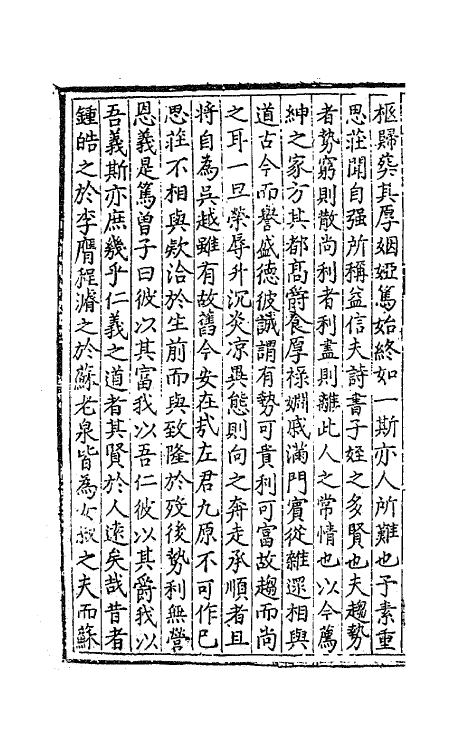 柩歸葬其厚姻婭篤始終如一斯亦人所難也予素重
思莊聞自强所稱益信夫詩書子姪之多賢也夫趨勢
者勢窮則散尚利者利盡則離此人之常情也以今薦
紳之家方其都髙爵食厚祿婣戚滿門賓從雜遝相與
道古今而譽盛德彼誠謂有勢可貴利可富故趨而尚
之耳一旦榮辱升沉炎凉異態則向之奔走承順者且
將自為吳越雖有故舊今安在㢤左君九原不可作巳
思莊不相與欵洽於生前而與致隆於歿後勢利無營
恩義是篤曽子曰彼以其富我以吾仁彼以其爵我以
吾義斯亦庶幾乎仁義之道者其賢於人遠矣哉昔者
鍾皓之於李膺程濬之於蘇老泉皆為女叔之夫而蘇